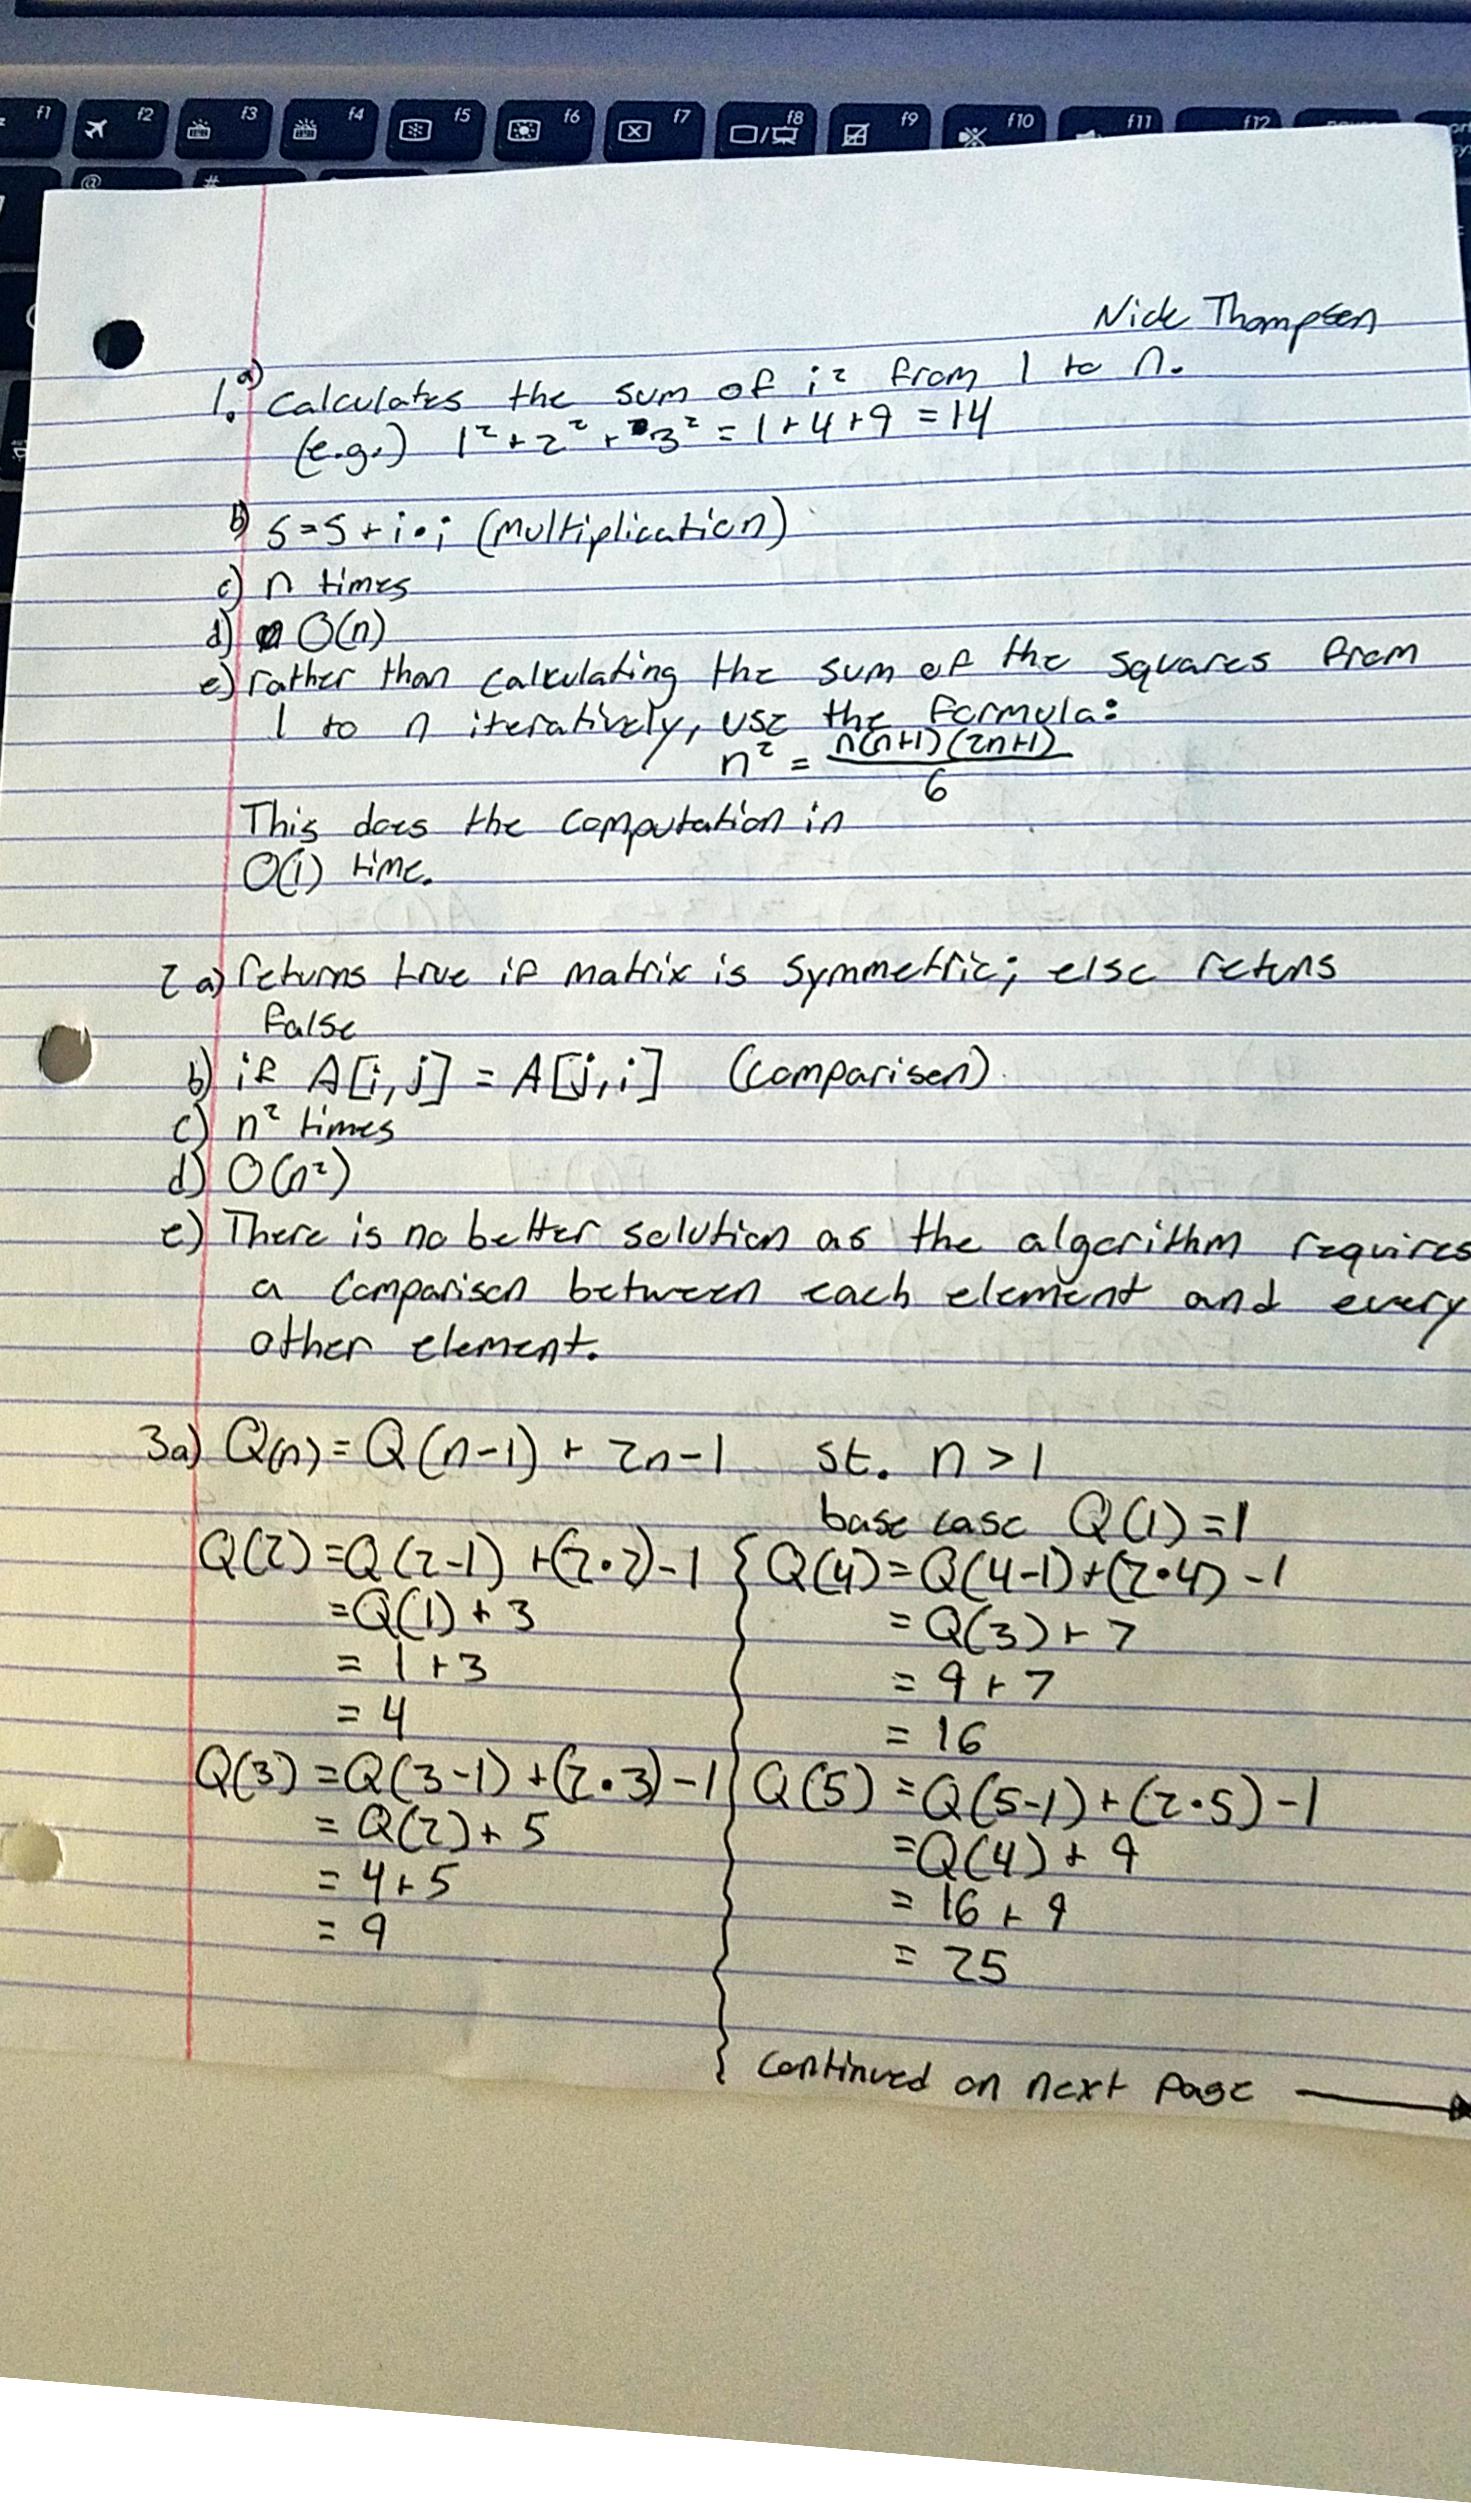 f1 f2 f3 f4 f5 f6 f7 f8 f9 f10 f11 f12
@ #
Nick Thompson
1. a) Calculates the sum of i² from 1 to n.
(e.g.) 1² + 2² + 3² = 1 + 4 + 9 = 14
b) S = S + i • i (multiplication)
c) n times
d) O(n)
e) rather than calculating the sum of the squares from
1 to n iteratively, use the formula:
n² = n(n+1)(2n+1)
6
This does the computation in
O(1) time.
2 a) returns true if matrix is symmetric; else returns
false
b) if A[i, j] = A[j, i] (comparison)
c) n² times
d) O(n²)
e) There is no better solution as the algorithm requires
a comparison between each element and every
other element.
3a) Q(n) = Q(n-1) + 2n-1 st. n > 1
base case Q(1) = 1
Q(2) = Q(2-1) + (2•2) - 1
= Q(1) + 3
= 1 + 3
= 4
Q(3) = Q(3-1) + (2•3) - 1
= Q(2) + 5
= 4 + 5
= 9
Q(4) = Q(4-1) + (2•4) - 1
= Q(3) + 7
= 9 + 7
= 16
Q(5) = Q(5-1) + (2•5) - 1
= Q(4) + 9
= 16 + 9
= 25
continued on next page →